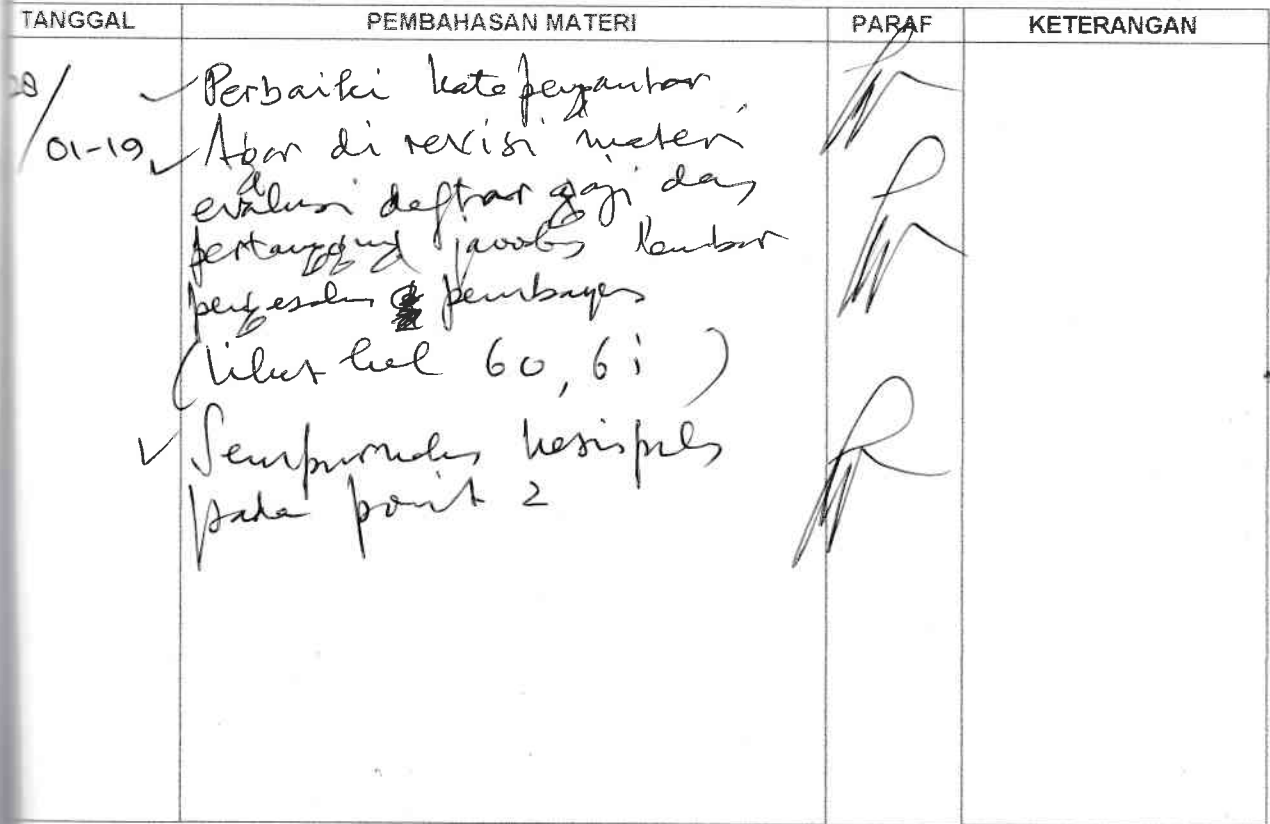 TANGGAL PEMBAHASAN MATERI PARAF KETERANGAN
28/01-19
Perbaiki kata pengantar
Agar di revisi materi
evaluasi daftar gaji dan
pertanggung jawaban lembar
pengesahan pembayaran
(lihat hal 60, 61)
Sempurnakan kesimpulan
pada point 2